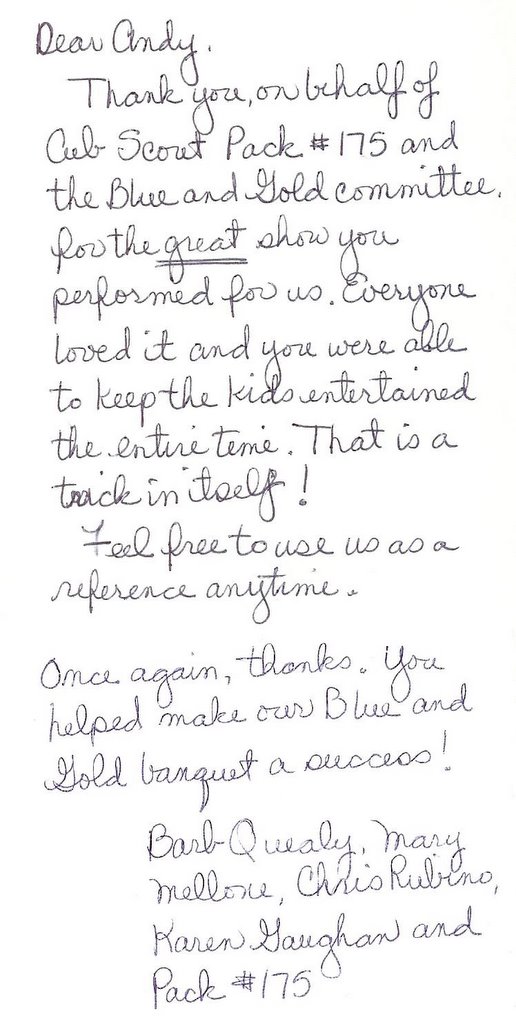 Dear Andy,
Thank you, on behalf of
Cub Scout Pack #175 and
the Blue and Gold committee,
for the great show you
performed for us. Everyone
loved it and you were able
to keep the kids entertained
the entire time. That is a
trick in itself!
Feel free to use us as a
reference anytime.
Once again, thanks. You
helped make our Blue and
Gold banquet a success!
Barb Quealy, Mary
Mellone, Chris Rubino,
Karen Gaughan and
Pack #175